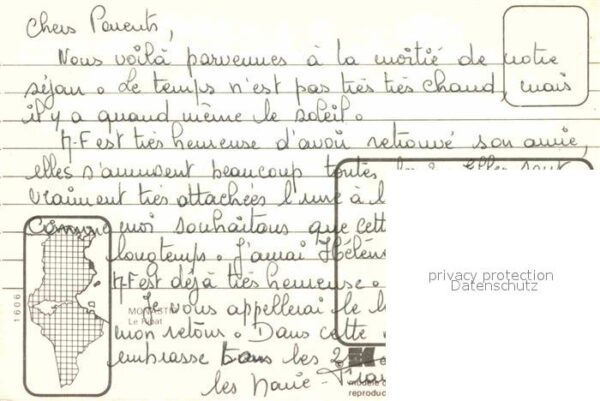 Chers Parents,
Nous voilà parvennes à la moitié de notre
séjour. Le temps n'est pas très très chaud, mais
il y a quand même le soleil.
M-F est très heureuse d'avoir retrouvé son amie,
elles s'amusent beaucoup toutes les 2. Elles sont
vraiment très attachées l'une à l'
Comme moi souhaitons que cett
longtemps. J'aurai Hélène
M-F est déjà très heureuse.
Je vous appellerai le l
mon retour. Dans cette
embrasse tous les 2
les Marie-Fran
1606
MONASTIR
Le Ribat
reproduc
privacy protection
Datenschutz